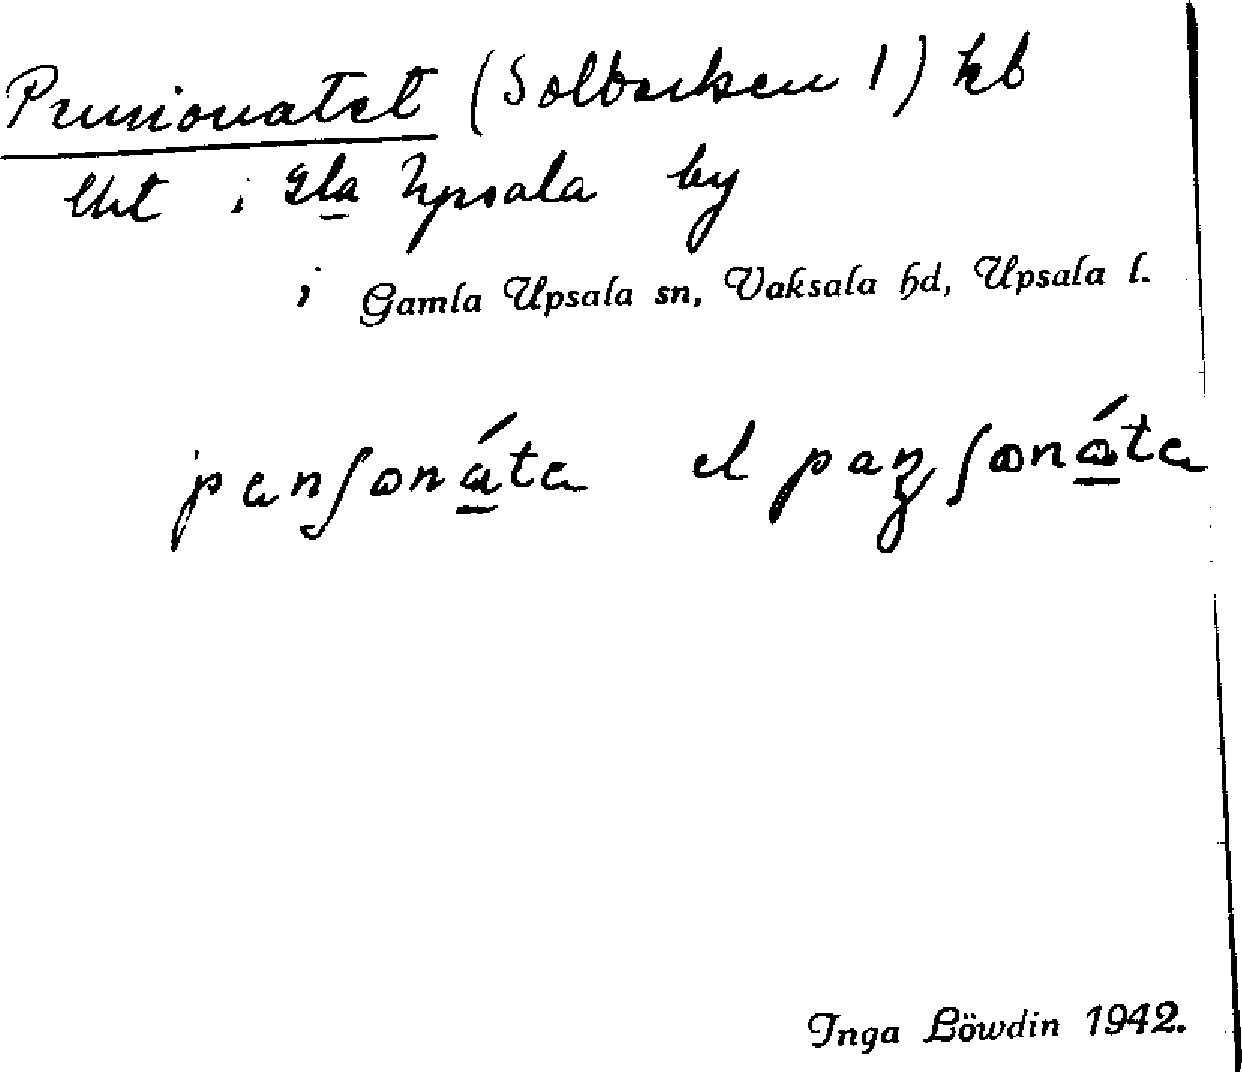 Pensionatet (Solbacken 1) kb
lht i Gla Upsala by
i Gamla Upsala sn, Vaksala hd, Upsala l.
panʃonáta el paŋʃonáta
Inga Löwdin 1942.